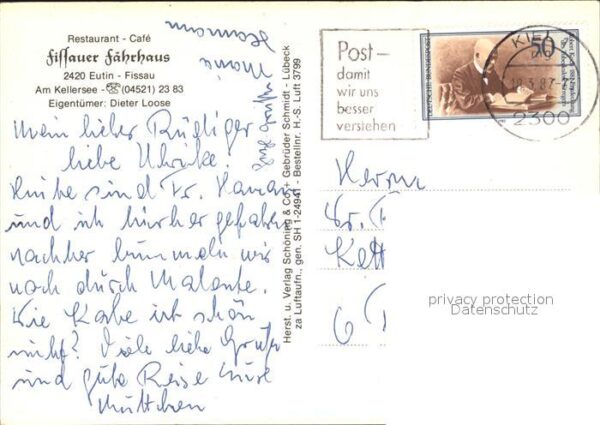 Restaurant - Café
Fissauer Fährhaus
2420 Eutin - Fissau
Am Kellersee - ☎ (04521) 23 83
Eigentümer: Dieter Loose
Mein lieber Rüdiger
liebe Ulrike!
Heute sind Fr. Hamann
und ich hierher gefahren
nachher bummeln wir
noch durch Malente.
Die Karte ist schön
nicht? Viele liebe Grüße
und gute Reise Eure
Muttchen
Maria
Hamann
Herst. u. Verlag Schöning & Co + Gebrüder Schmidt - Lübeck
za Luftaufn., gen. SH 1-24941 - Bestellnr. H.-S. Luft 3799
Post -
damit
wir uns
besser
verstehen
DEUTSCHE BUNDESPOST
50
KIEL
2300
Herrn
Dr.
Kett
6
privacy protection
Datenschutz